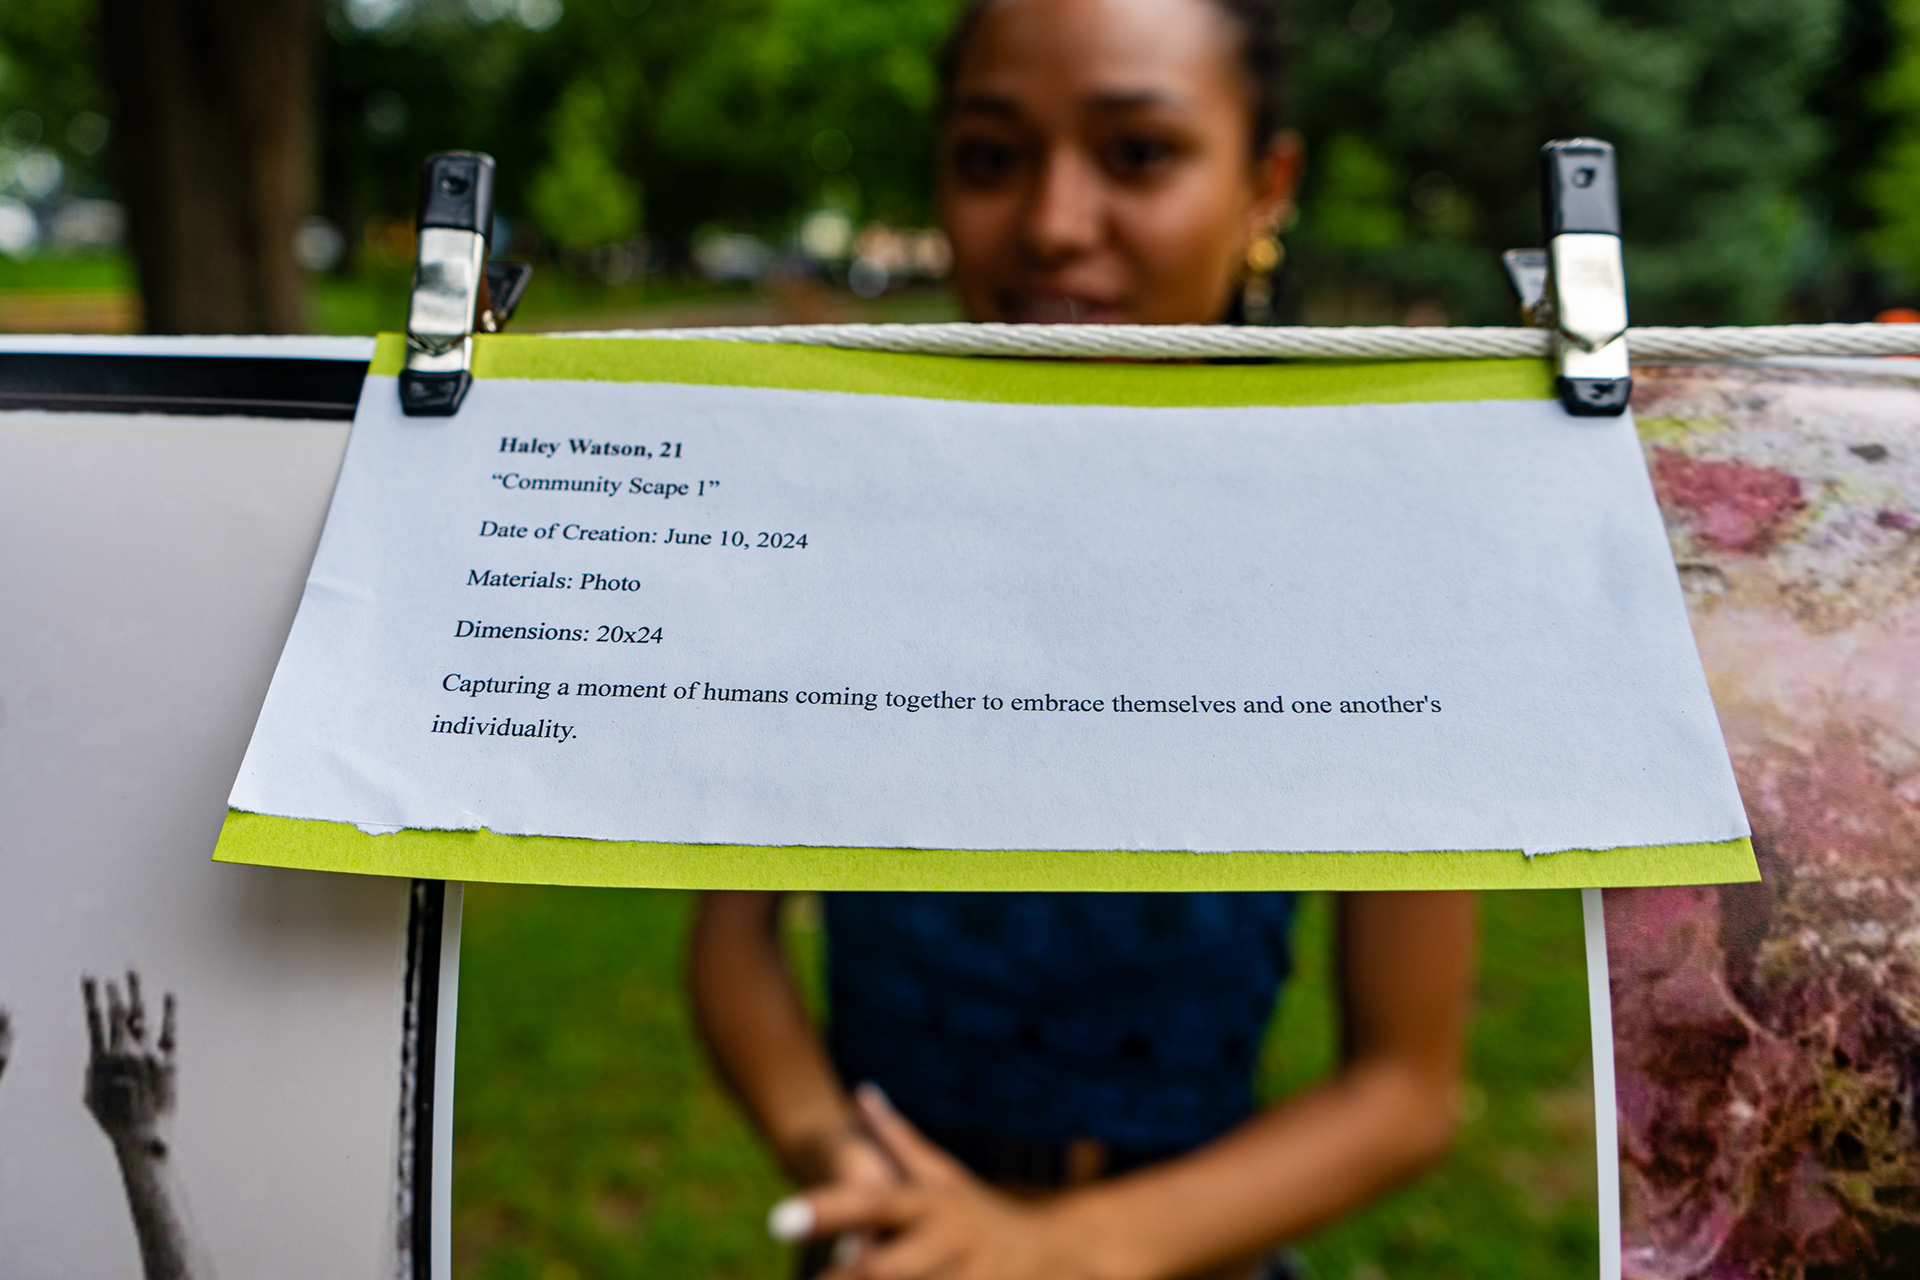 Haley Watson, 21
“Community Scape 1”
Date of Creation: June 10, 2024
Materials: Photo
Dimensions: 20x24
Capturing a moment of humans coming together to embrace themselves and one another's
individuality.